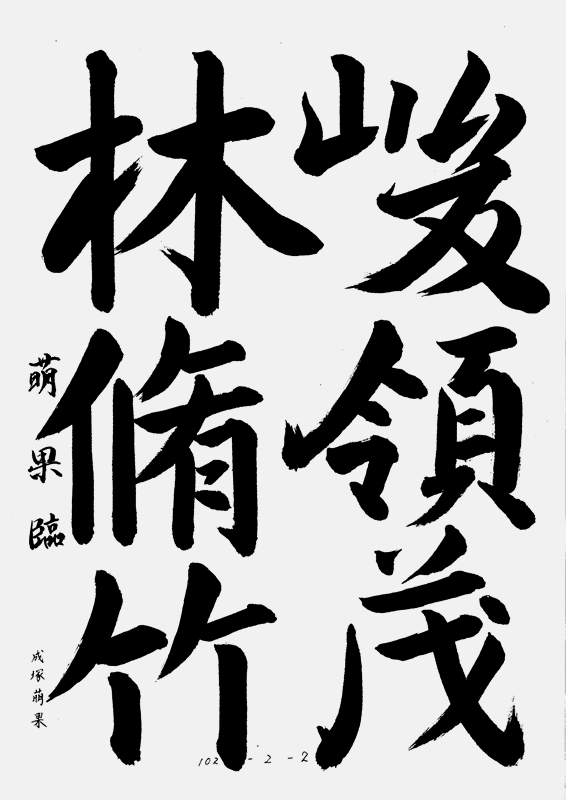 峻領茂
林脩竹
萌果臨
成塚萌果
102-2-2